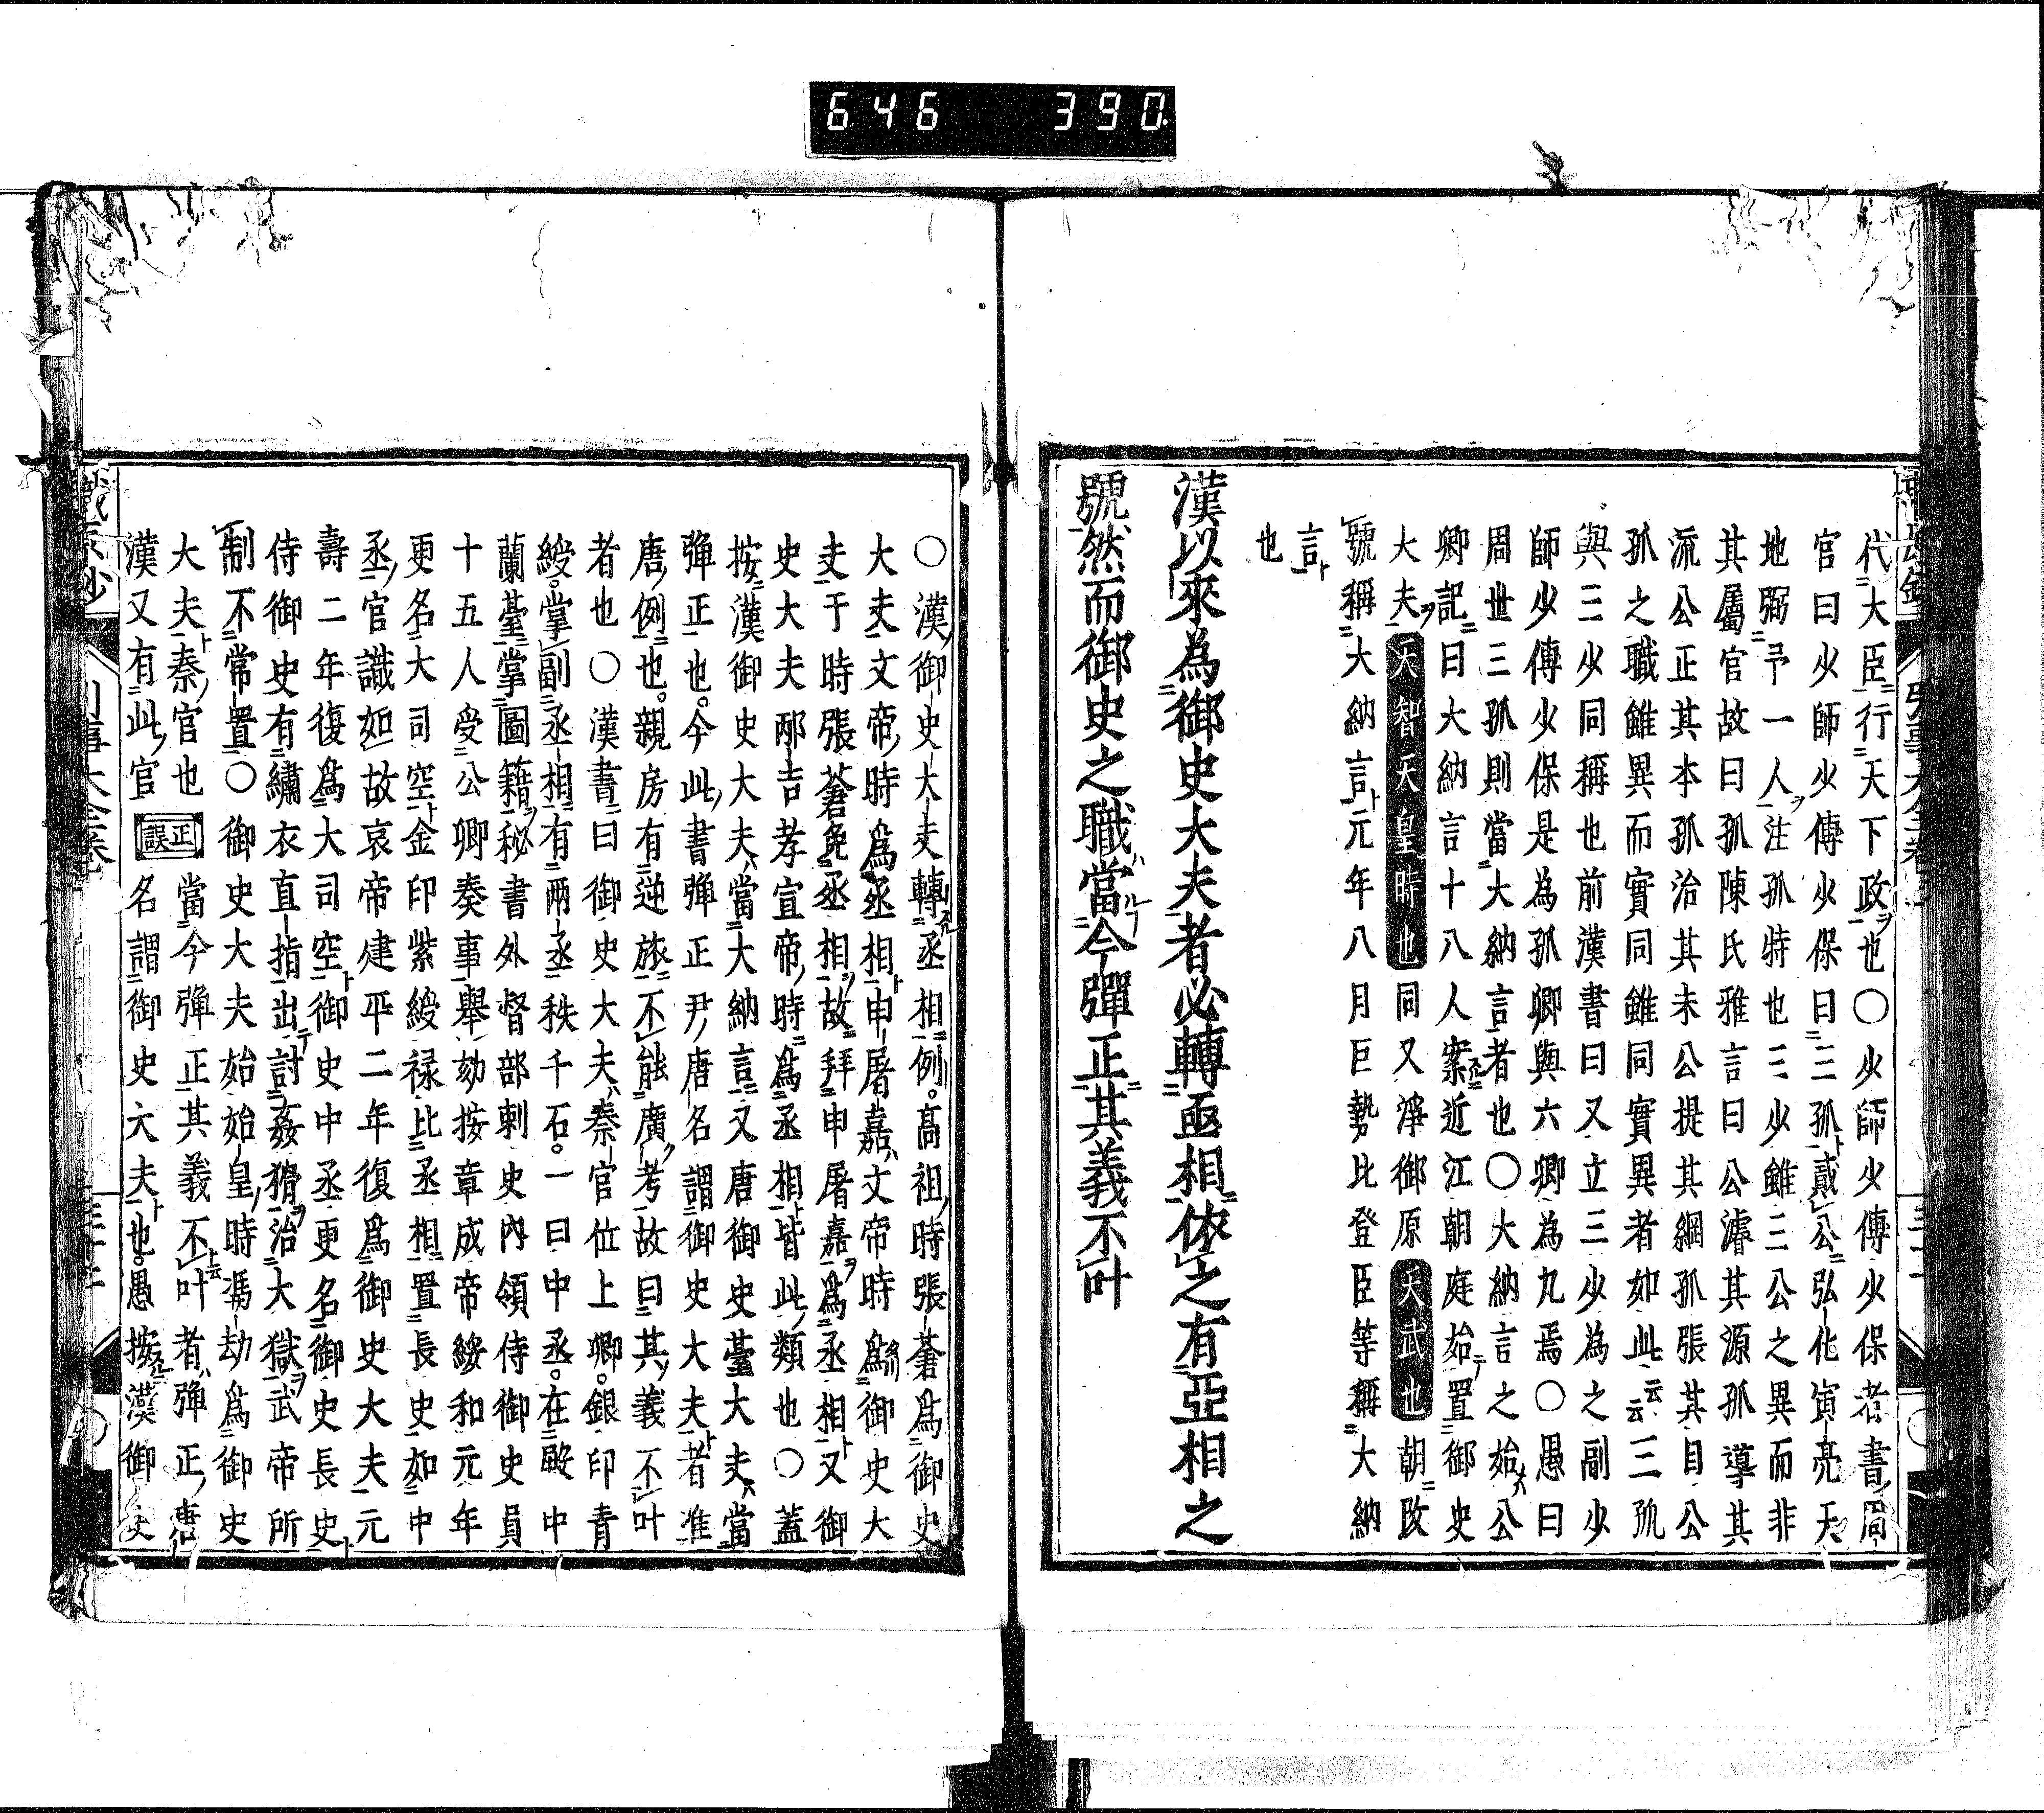 646 390
代大臣行天下政ヲ也○少師少傅少保者書周
官曰少師少傅少保曰三孤ト貳公弘化寅亮天
地弼予一人ヲ注孤特也三少雖三公之異而非
其屬官故曰孤陳氏雅言曰公濬其源孤導其
流公正其本孤治其末公提其綱孤張其目公
孤之職雖異而實同雖同實異者如此云云三孤
與三少同稱也前漢書曰又立三少為之副少
師少傅少保是為孤卿與六卿為九焉○愚曰
周世三孤則當大納言者也○大納言之始ハ公
卿記曰大納言十八人案近江朝庭始テ置御史
大夫ヲ天智天皇時也同又淨御原天武也朝改
號稱大納言ト元年八月巨勢比登臣等稱大納
言ト
也
漢以來為御史大夫者必轉亟相依之有亞相之
號然而御史之職ハ當今彈正其義不叶
○漢御史大夫轉丞相例高祖時張蒼爲御史
大夫文帝時爲丞相ト申屠嘉ハ文帝時爲御史大
夫于時張蒼免丞相ヲ故拜申屠嘉ヲ爲丞相ト又御
史大夫邴吉孝宣帝時爲丞相ト皆此類也○蓋
按漢御史大夫ハ當大納言又唐御史臺大夫ハ當
彈正也今此書彈正尹唐名謂御史大夫ト者准
唐例也親房有逆旅不能廣考故曰其義不叶
者也○漢書曰御史大夫ハ秦官位上卿銀印青
綬掌副丞相有兩丞秩千石一曰中丞在殿中
蘭臺掌圖籍ヲ秘書外督部刺史內領侍御史員
十五人受公卿奏事舉劾按章成帝綏和元年
更名大司空ト金印紫綬禄比丞相置長史如中
丞官識如故哀帝建平二年復爲御史大夫元
壽二年復爲大司空ト御史中丞更名御史長史ト
侍御史有繡衣直指出テ討姦猾ヲ治大獄ヲ武帝所
制不常置○御史大夫始始皇時馮劫爲御史
大夫ト秦官也當今彈正其義不叶者ハ彈正唐
漢又有此官正誤名謂御史大夫ト也愚按漢御史